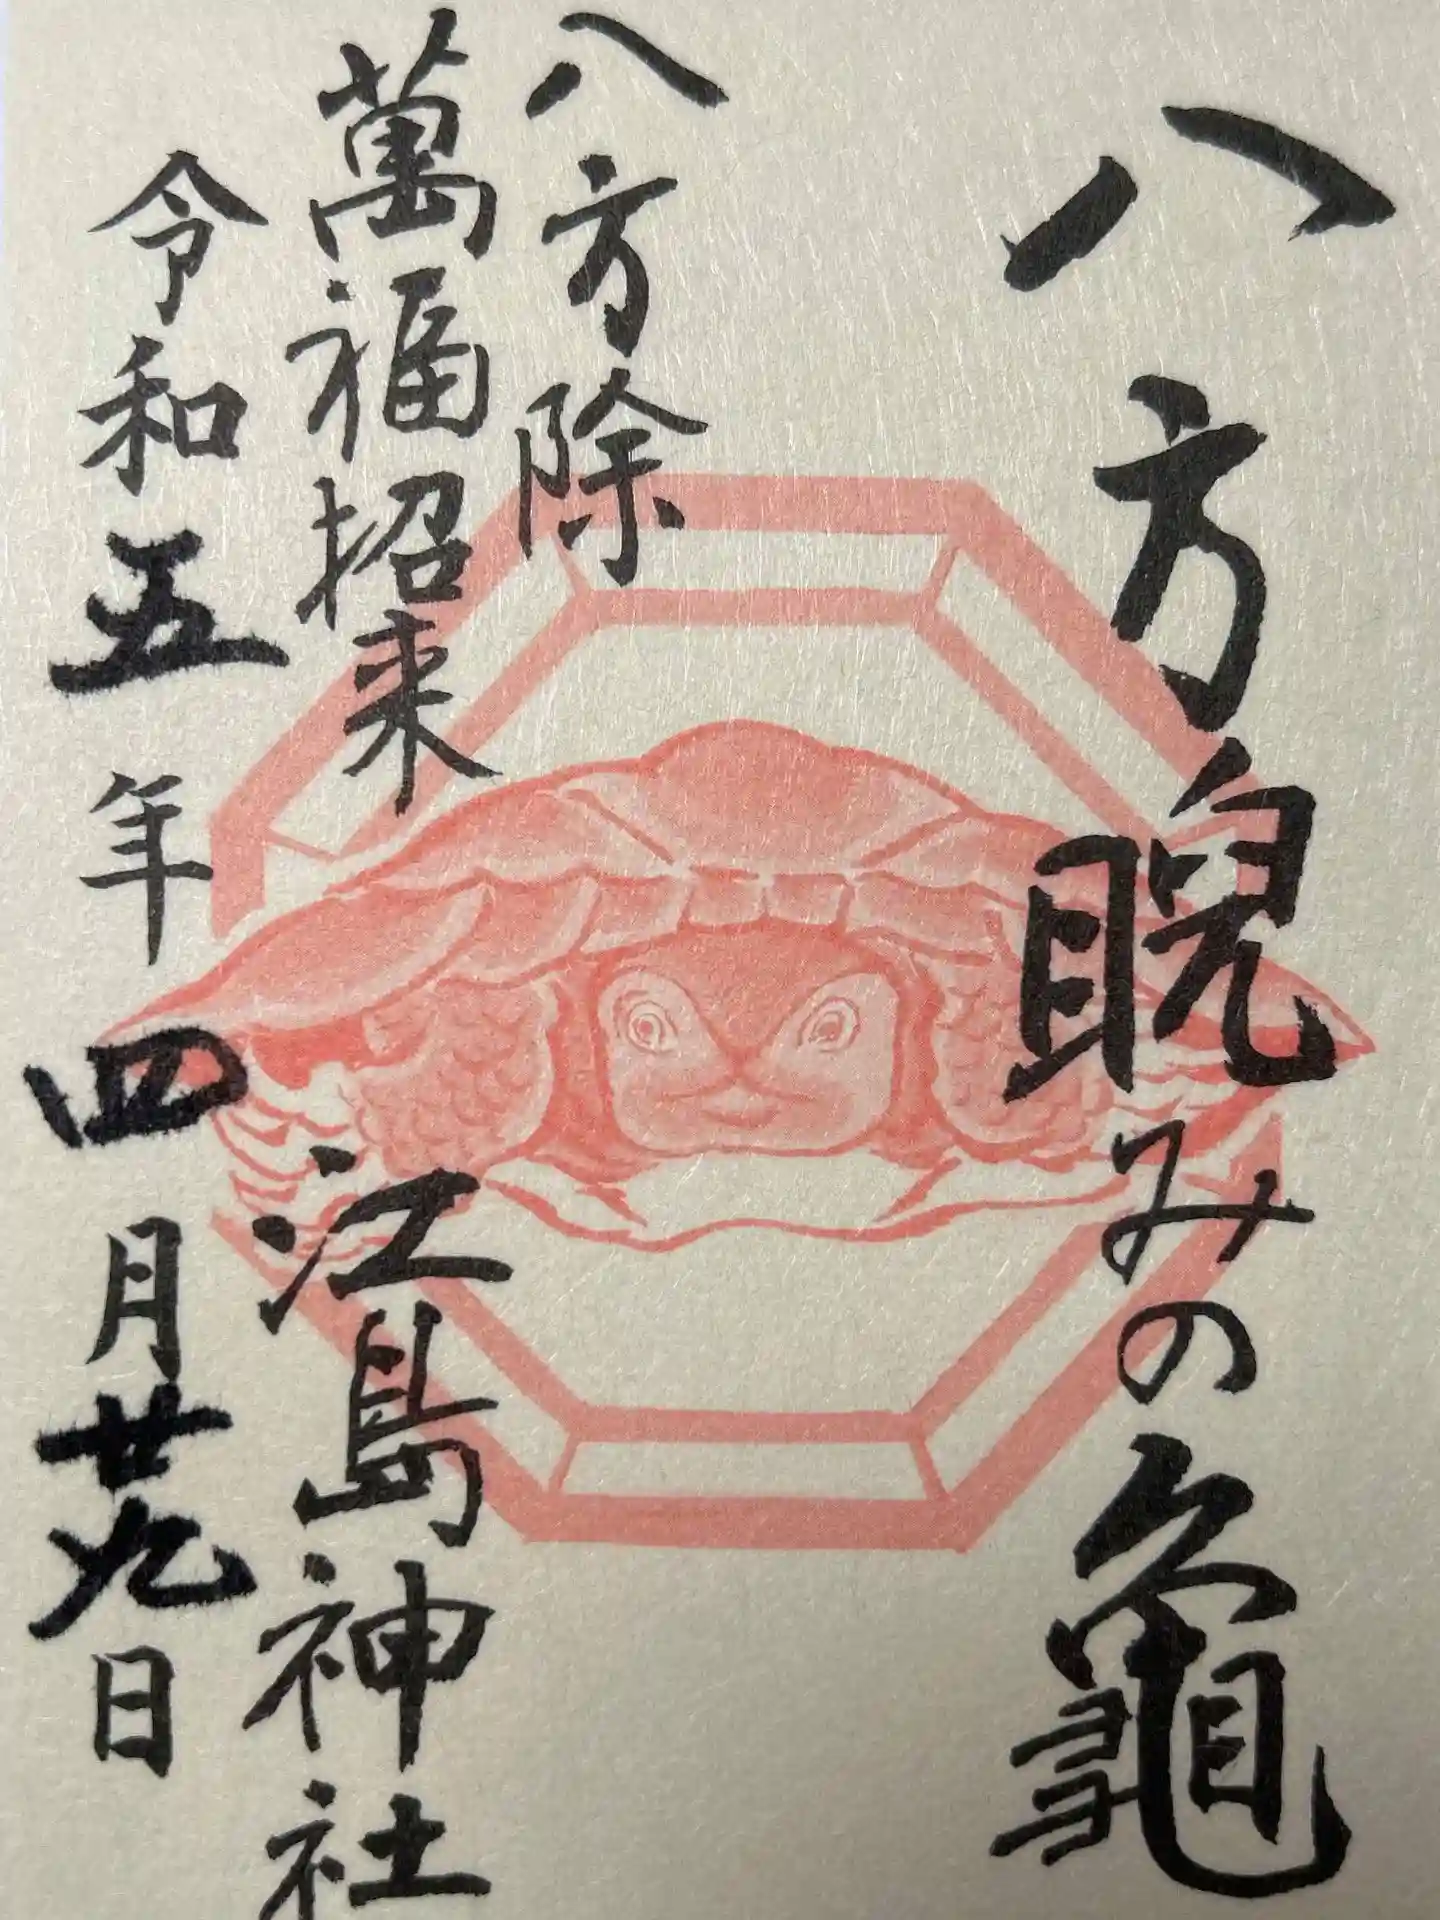 八方睨みの龜
八方除
萬福招来
江島神社
令和五年四月廿九日